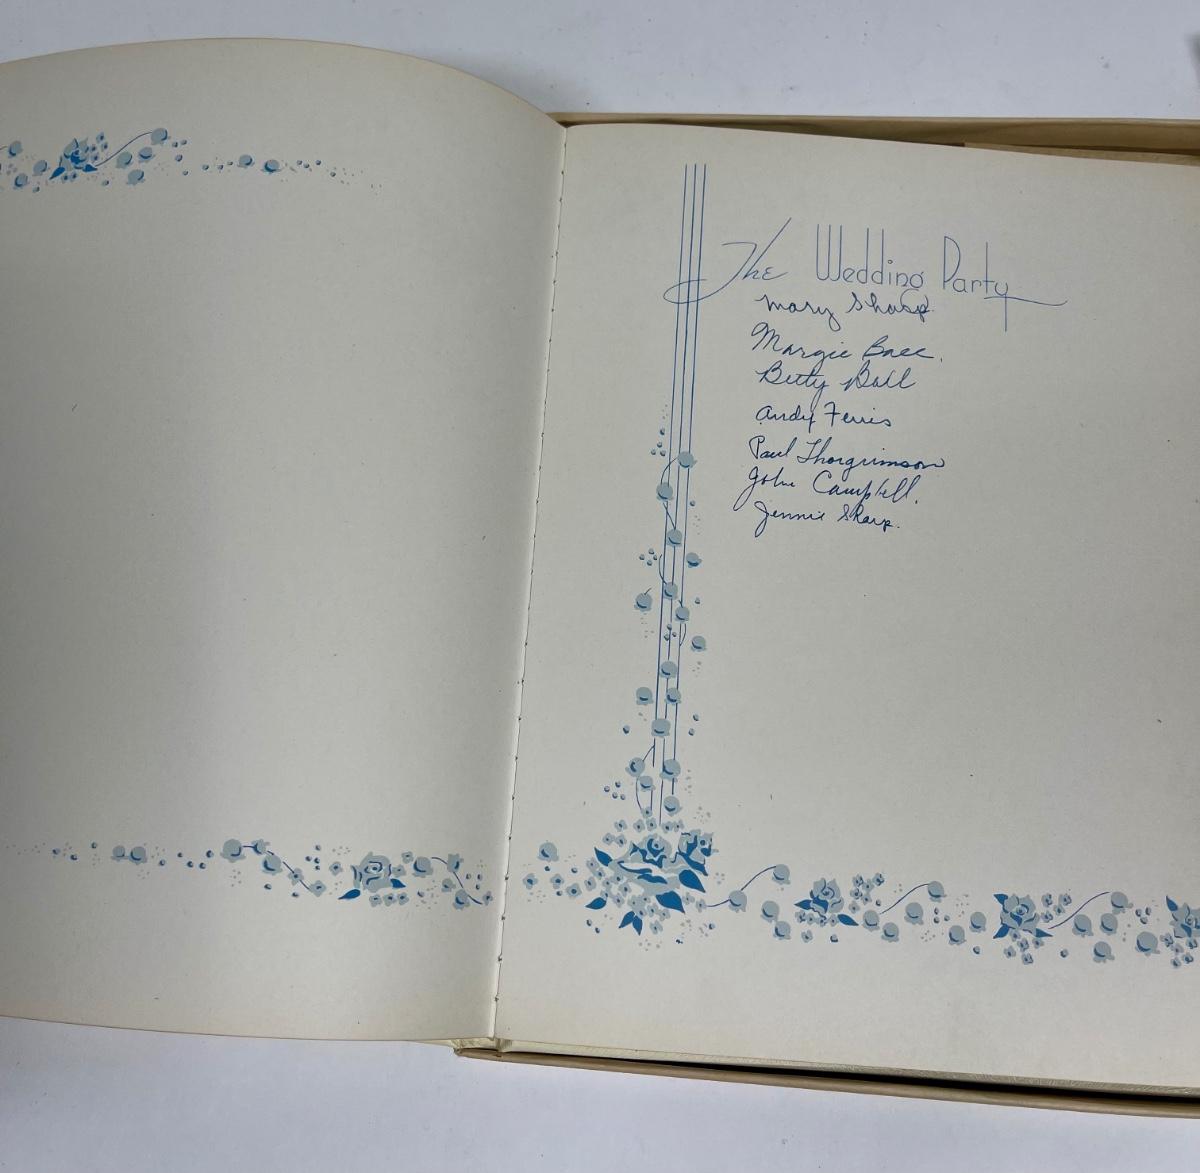 The Wedding Party
Mary Sharp
Margie Ball.
Betty Ball
Andy Ferris
Paul Thorgrimson
John Campbell.
Jennie Sharp.